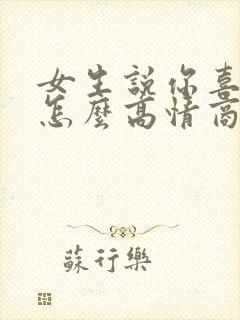 女生説你喜
怎麼高情商
蘇行樂